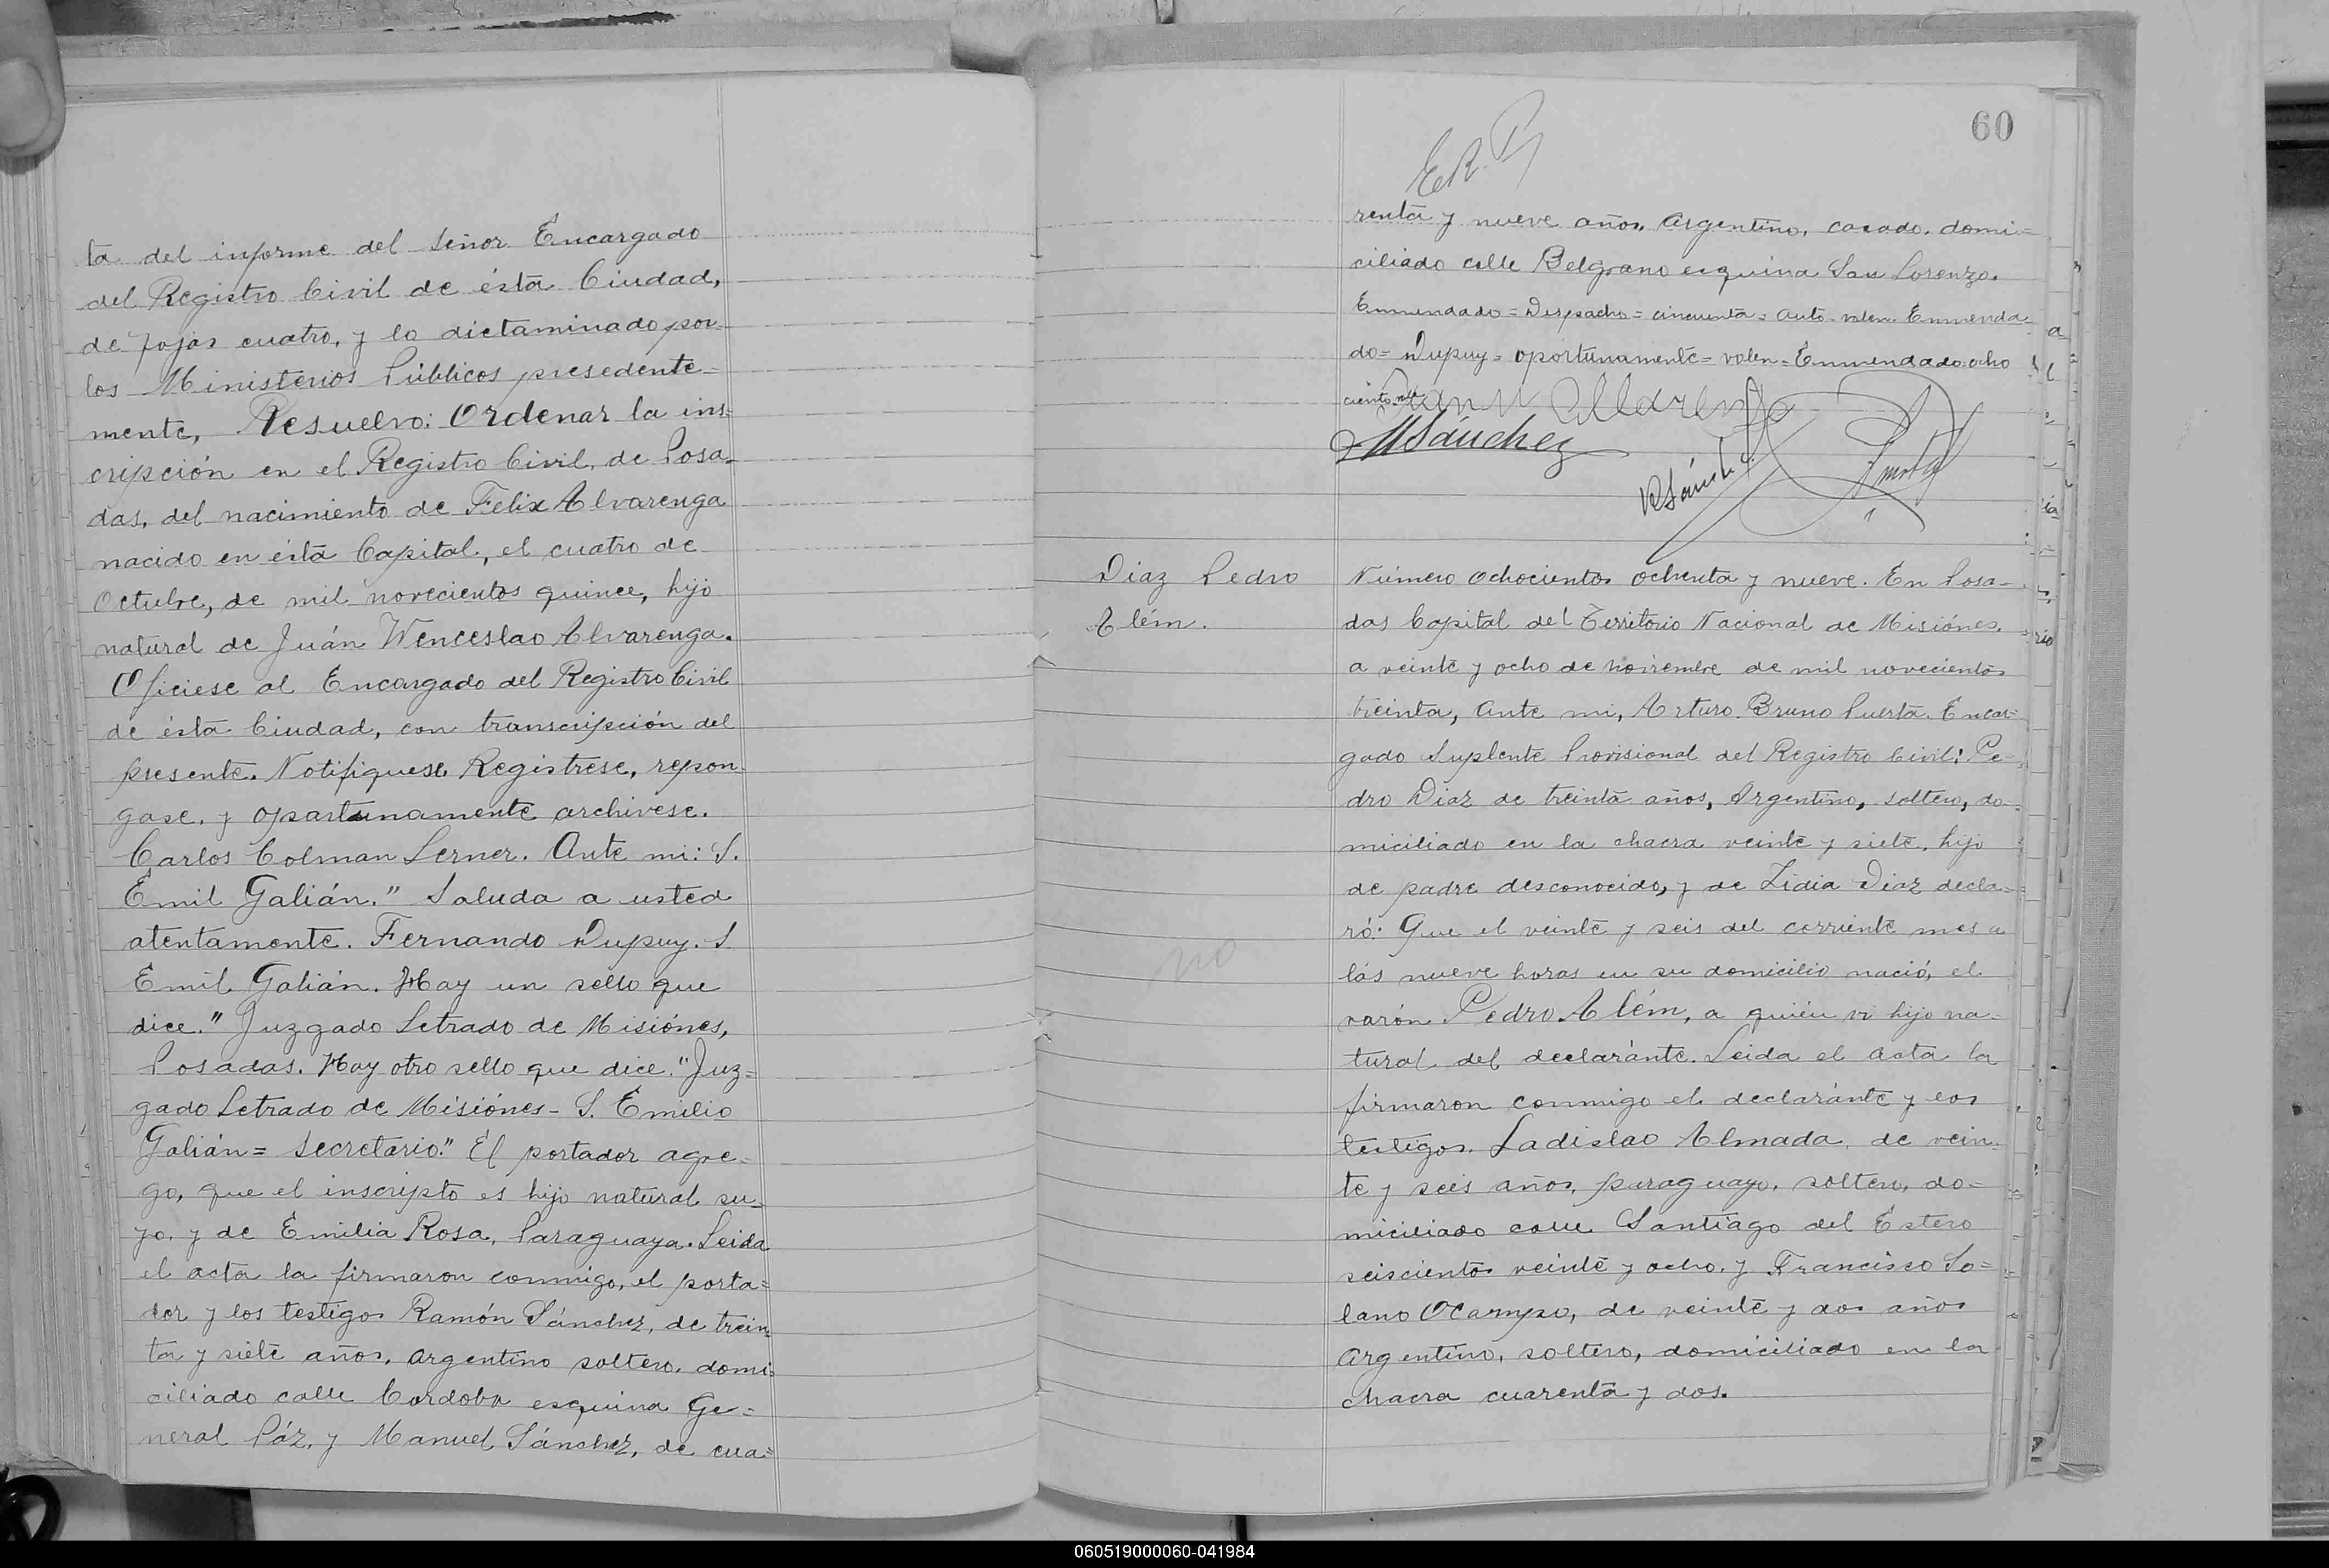 ta del informe del señor Encargado
del Registro Civil de ésta Ciudad,
de fojas cuatro, y lo dictaminado por
los Ministerios Públicos presedente=
mente, Resuelvo: Ordenar la ins=
cripción en el Registro Civil, de Posa-
das, del nacimiento de Felix Alvarenga
nacido en ésta Capital, el cuatro de
Octubre, de mil novecientos quince, hijo
natural de Juán Wenceslao Alvarenga.
Oficiese al Encargado del Registro Civil
de ésta Ciudad, con transcripción del
presente. Notifiquese. Registrese, repon-
gase, y oportunamente archivese.
Carlos Colman Lerner. Ante mi: S.
Emil Galián." Saluda a usted
atentamente. Fernando Dupuy. S.
Emil Galián. Hay un sello que
dice." Juzgado Letrado de Misiónes,
Posadas. Hay otro sello que dice. "Juz=
gado Letrado de Misiónes- S. Emilio
Galián= Secretario." El portador agre=
go, que el inscripto es hijo natural su=
yo, y de Emilia Rosa, Paraguaya. Leida
el acta la firmaron conmigo, el porta=
dor y los testigos Ramón Sánchez, de trein
ta y siete años, argentino soltero, domi=
ciliado calle Cordoba esquina Ge=
neral Páz, y Manuel Sánchez, de cua=
60
renta y nueve años, Argentino, casado, domi=
ciliado calle Belgrano esquina San Lorenzo.
Enmendado= Despacho= cincuenta= auto- valen. Enmenda-
do= Dupuy= oportunamente= valen= Enmendado: ocho
cientos
MSánchez
RSánchez
Diaz Pedro
Além.
Número ochocientos ochenta y nueve. En Posa-
das Capital del Territorio Nacional de Misiónes,
a veinte y ocho de noviembre de mil novecientos
treinta, Ante mi, Arturo Bruno Puerta. Encar=
gado Suplente Provisional del Registro Civil: Pe-
dro Diaz de treinta años, Argentino, soltero, do-
miciliado en la chacra veinte y siete, hijo
de padre desconocido, y de Lidia Diaz decla=
ró: Que el veinte y seis del corriente mes a
lás nueve horas en su domicilio nació, el
varón Pedro Além, a quién vi hijo na-
tural del declaránte. Leida el acta la
firmaron conmigo el declaránte y los
testigos. Ladislao Almada, de vein-
te y seis años, paraguayo, soltero, do=
miciliado calle Santiago del Estero
seiscientos veinte y ocho, y Francisco So=
lano Ocampo, de veinte y dos años
Argentino, soltero, domiciliado en la
chacra cuarenta y dos.
no
060519000060-041984